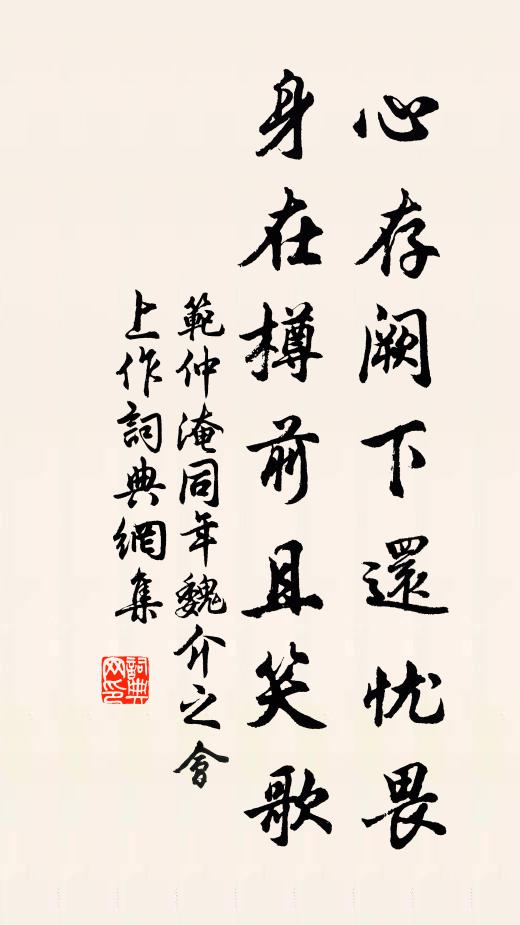 心存阙下還忧畏
身在樽前且笑歌
範仲淹同年魏介之會
上作詞典網集
詞典网印